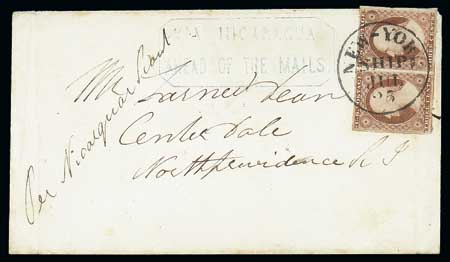 VIA NICARAGUA
AHEAD OF THE MAILS.
NEW-YORK
SHIP
JUL
25
Mr Dean
Centre Dale
North Providence R I
Per Nicaragua Boat